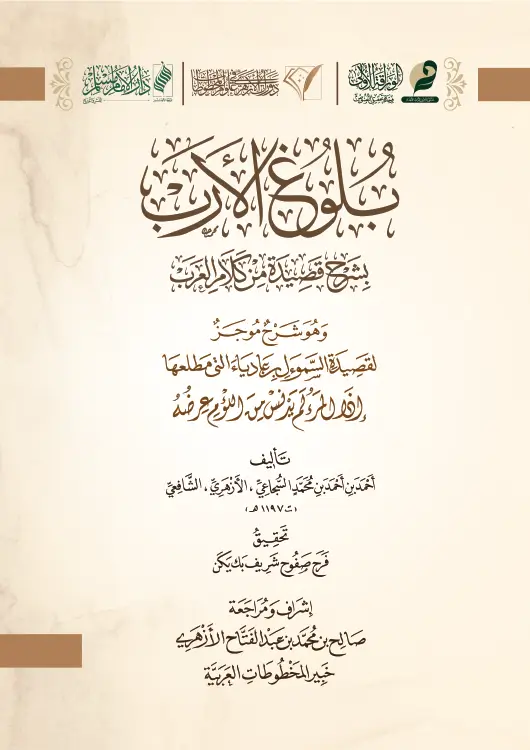 دار الإمام مسلم
بُلُوغُ الأَرَبْ
بِشَرْحِ قَصِيدَةٍ مِنْ كَلَامِ العَرَبْ
وَهُوَ شَرْحٌ مُوجَزٌ
لقَصِيدَةِ السَّموءَلِ بنِ عَادِيَاءَ التي مَطلعهَا
إِذَا المَرْءُ لَمْ يَدْنَسْ مِنَ اللُّؤْمِ عِرْضُهُ
تَأليف
أَحْمَدَ بنِ أَحْمَدَ بنِ مُحَمَّدٍ السُّجَاعِيِّ ، الأَزْهَرِيِّ ، الشَّافِعِيِّ
(ت ١١٩٧ هـ)
تَحقِيقُ
فَرَح صَفُوح شَرِيف بَك يَكَن
إِشرَاف وَمُرَاجَعَة
صَالِح بن مُحَمَّد بن عَبدِ الفَتَّاح الأَزهَرِي
خَبِير المَخْطُوطَاتِ العَرَبِيَّة